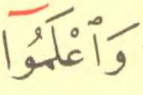 وَٱعْلَمُوٓا